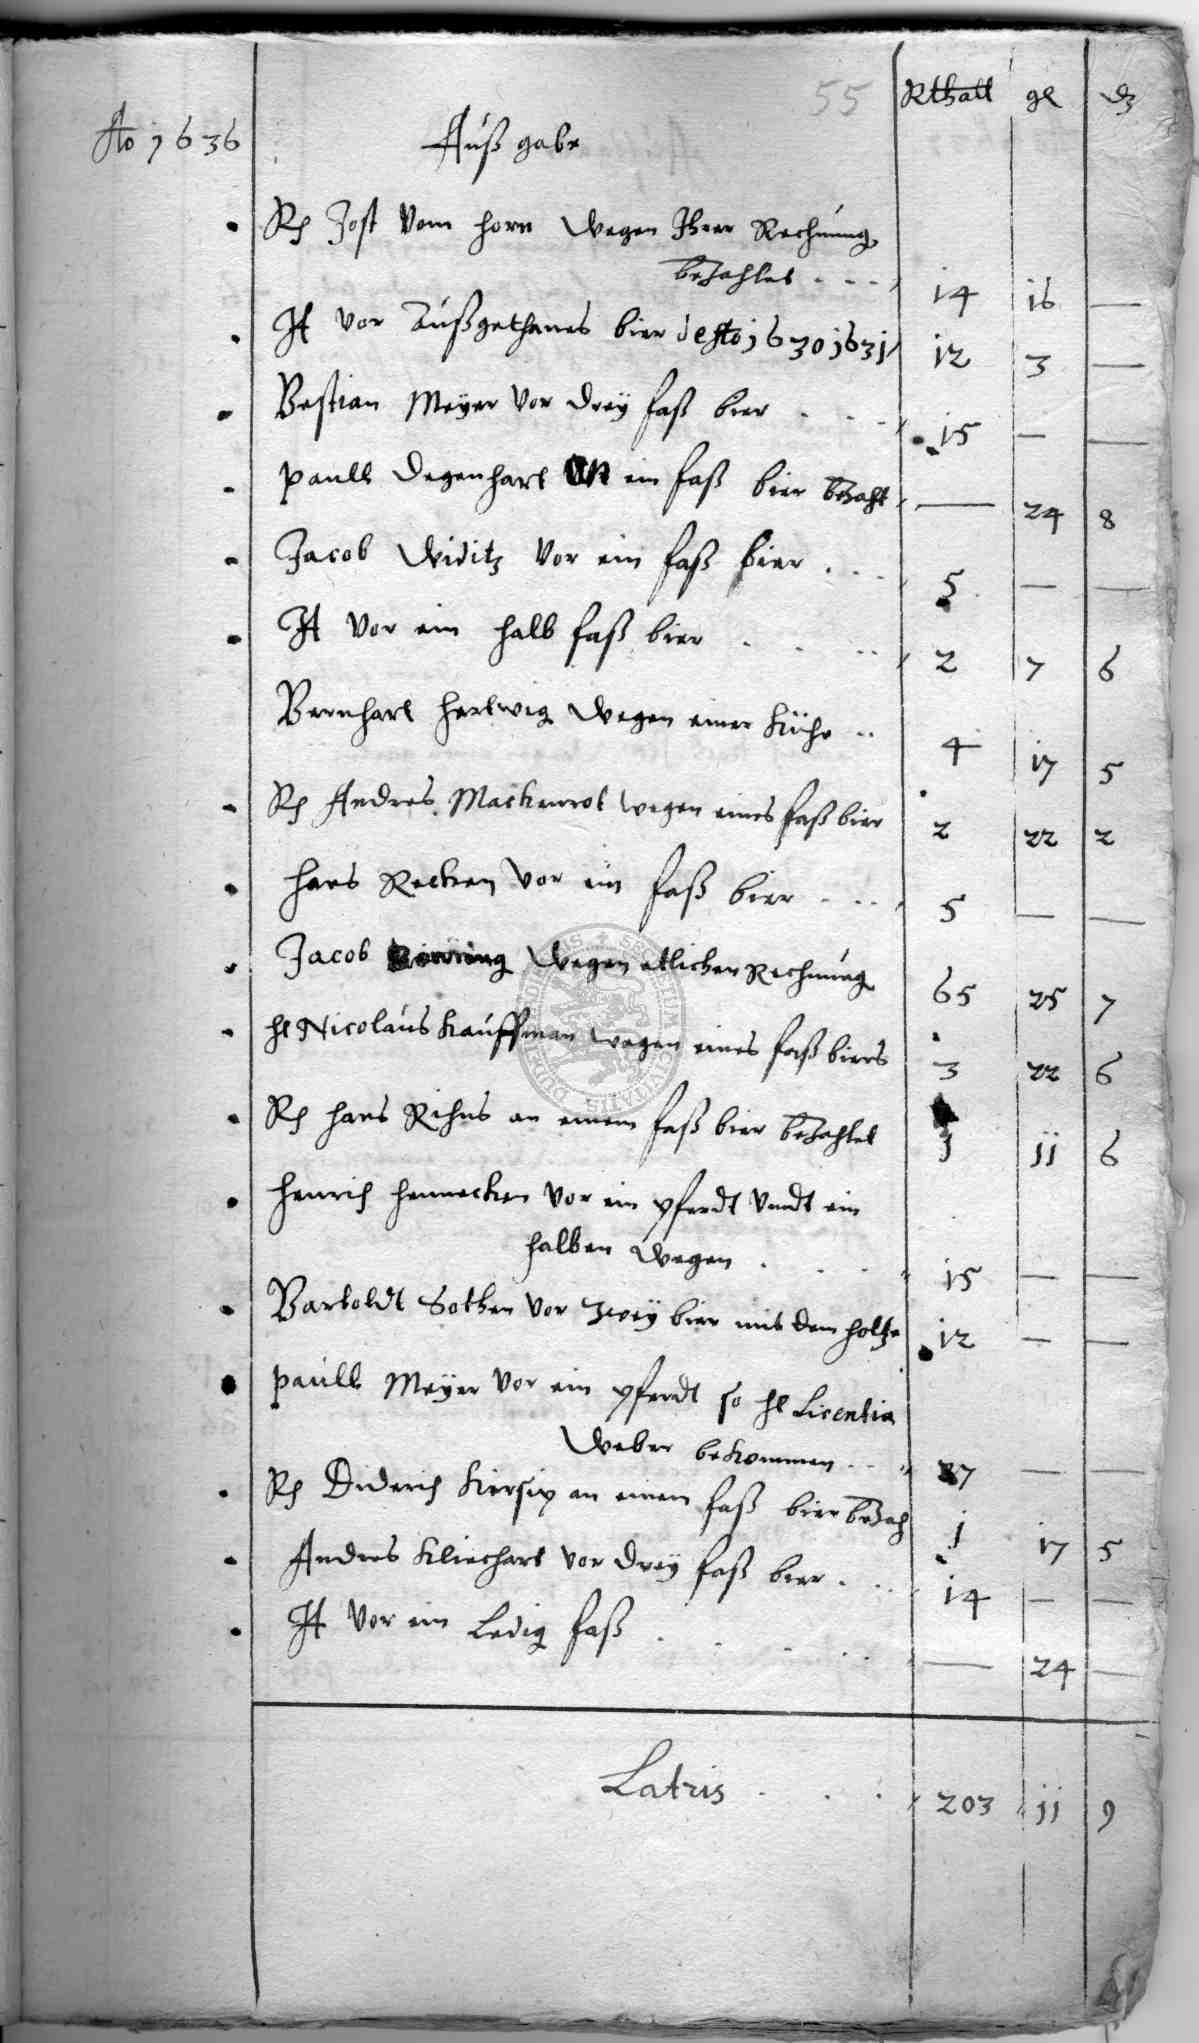 55 Rthall gl ₰
Ao 1636 Außgabe
Rh Jost vom horn wegen Ihrer Rechnung
bezahlet 14 16 —
It vor Außgethanes bier de Ao 1630 1631 12 3 —
Bestian Meÿer vor dreÿ faß bier 15 — —
paull Degenhart an ein faß bier bezahlt — 24 8
Jacob Widitz vor ein faß bier 5 — —
It vor ein halb faß bier 2 7 6
Bernhart hertwig wegen einer Kühe 4 17 5
Rh Andres Mackenrot wegen eines faß bier 2 22 2
hans Recken vor ein faß bier 5 — —
Jacob wegen etlichen Rechnung 65 25 7
hl Nicolaus Kauffman wegen eines faß biers 3 22 6
Rh hans Rihus an einem faß bier bezahlet 1 11 6
Henrich Hennecken vor ein pferdt undt ein
halben wegen 15 — —
Bartoldt Sothen vor zweÿ bier mit dem holtze 12 — —
paull Meÿer vor ein pferdt so hl Licentia
Weber bekommen 37 — —
Rh Diderich an einem faß bier bezah 1 17 5
Andres Kliechart vor dreÿ faß bier 14 — —
It vor ein Ledig faß — 24 —
Latris 203 11 9